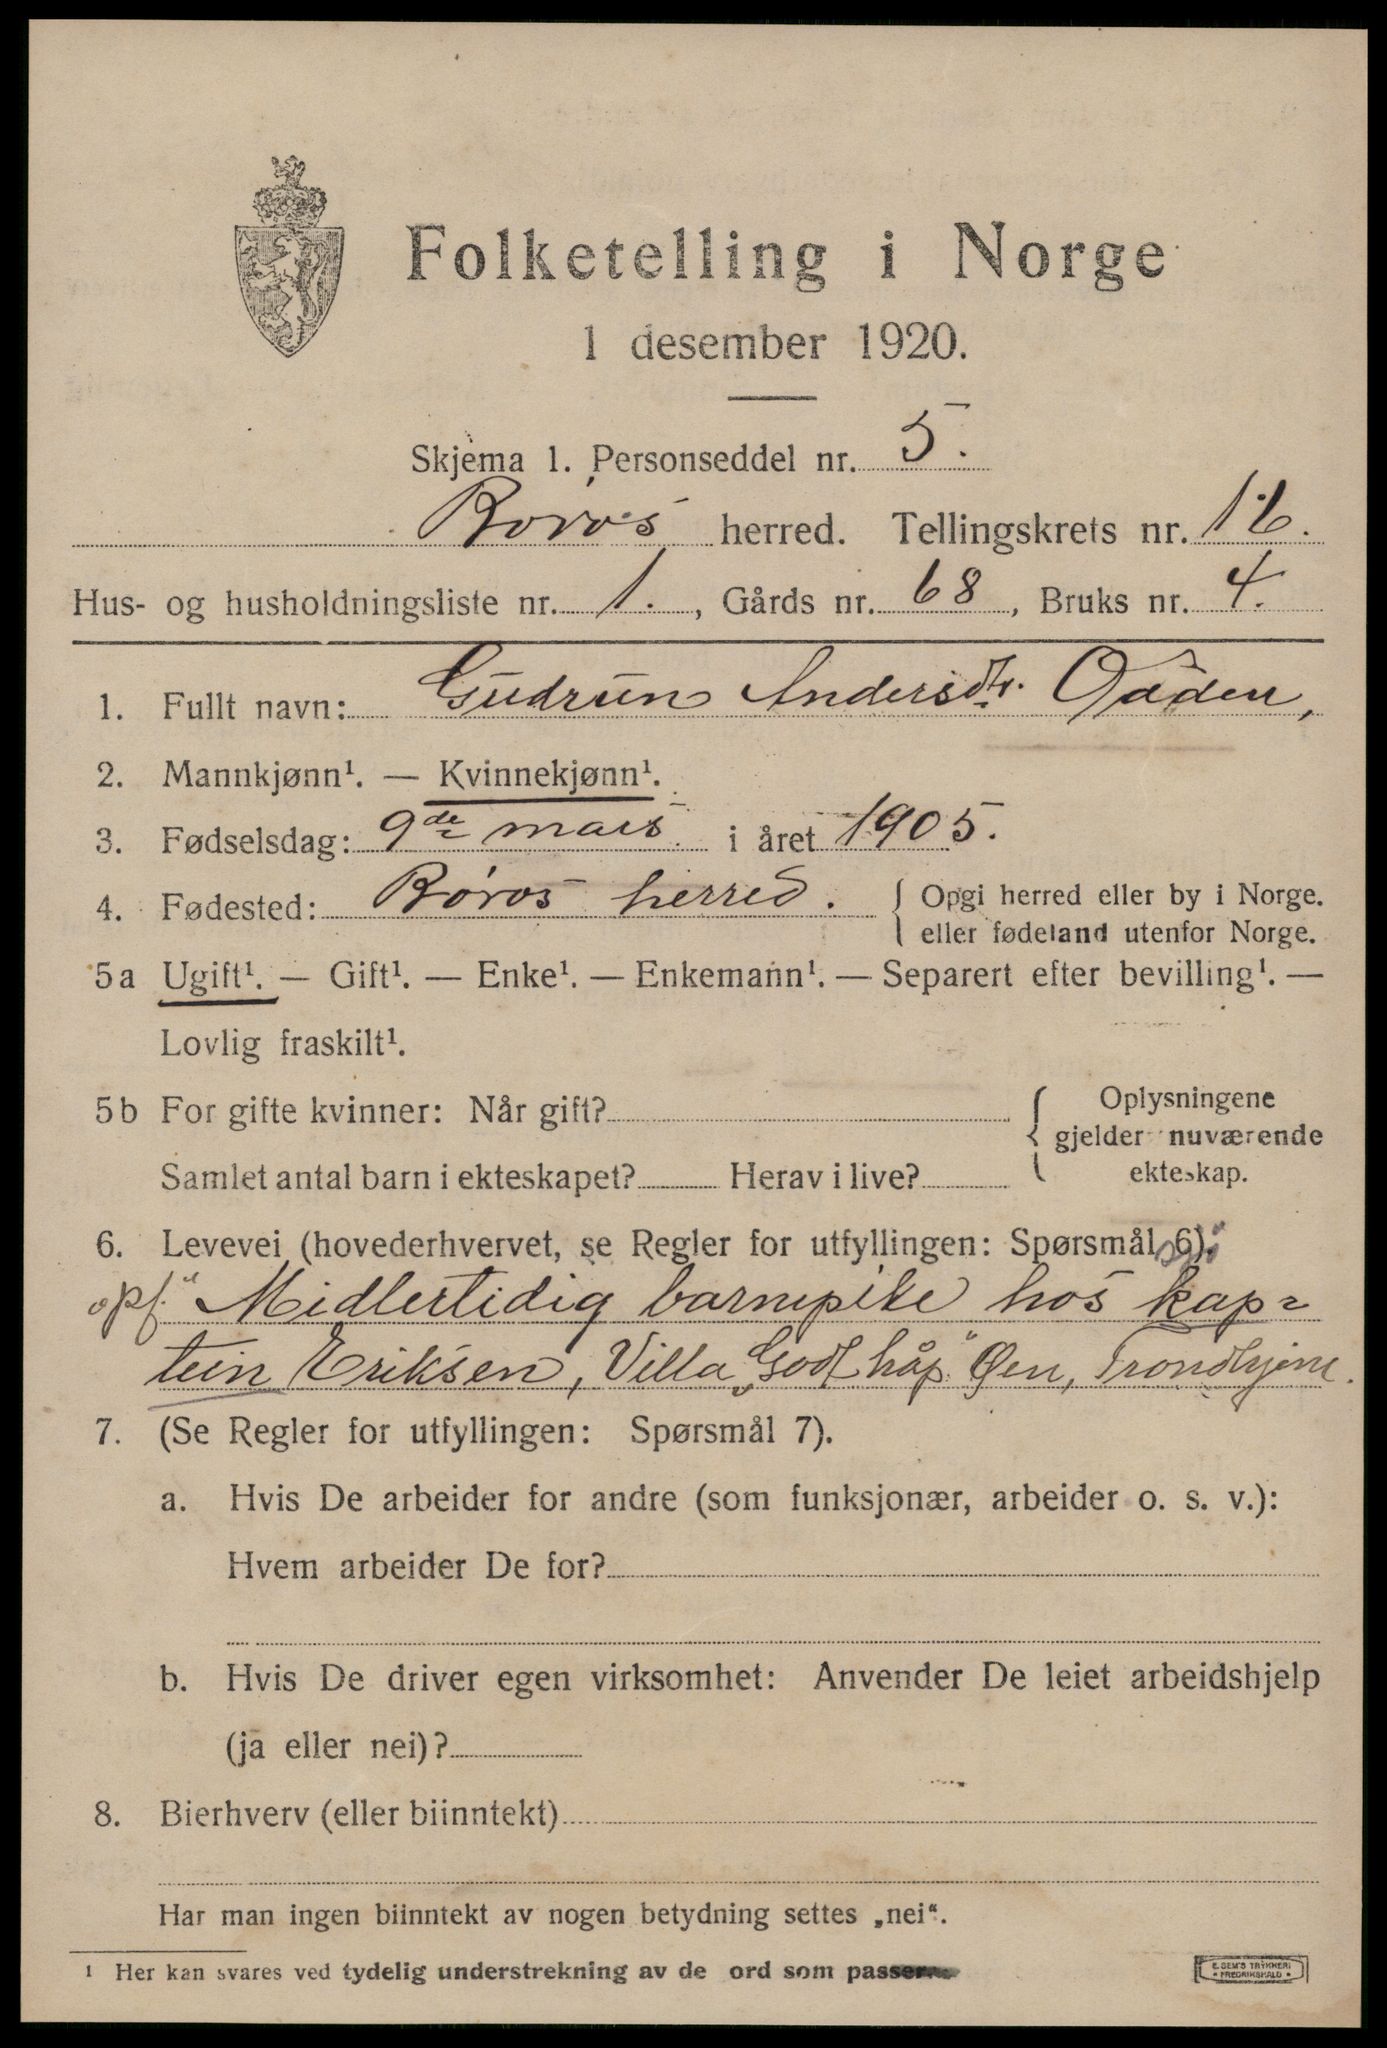 Folketelling i Norge
1 desember 1920.
Skjema 1. Personseddel nr. 5.
Røros herred. Tellingskrets nr. 16.
Hus- og husholdningsliste nr. 1., Gårds nr. 68, Bruks nr. 4.
1. Fullt navn: Gudrun Andersdtr. Odden,
2. Mannkjønn¹. — Kvinnekjønn¹.
3. Fødselsdag: 9de mars i året 1905.
4. Fødested: Røros herred. { Opgi herred eller by i Norge.
eller fødeland utenfor Norge.
5a Ugift¹. — Gift¹. — Enke¹. — Enkemann¹. — Separert efter bevilling¹. —
Lovlig fraskilt¹.
5b For gifte kvinner: Når gift?
Samlet antal barn i ekteskapet? Herav i live?
{ Oplysningene
gjelder nuværende
ekteskap.
6. Levevei (hovederhvervet, se Regler for utfyllingen: Spørsmål 6).
opf. Midlertidig barnepike hos kap-
tein Eriksen, Villa „Godt håp" Øen, Trondhjem.
7. (Se Regler for utfyllingen: Spørsmål 7).
a. Hvis De arbeider for andre (som funksjonær, arbeider o. s. v.):
Hvem arbeider De for?
b. Hvis De driver egen virksomhet: Anvender De leiet arbeidshjelp
(ja eller nei)?
8. Bierhverv (eller biinntekt)
Har man ingen biinntekt av nogen betydning settes „nei“.
¹ Her kan svares ved tydelig understrekning av de ord som passer
E. SEM'S TRYKKERI
• FREDRIKSHALD •